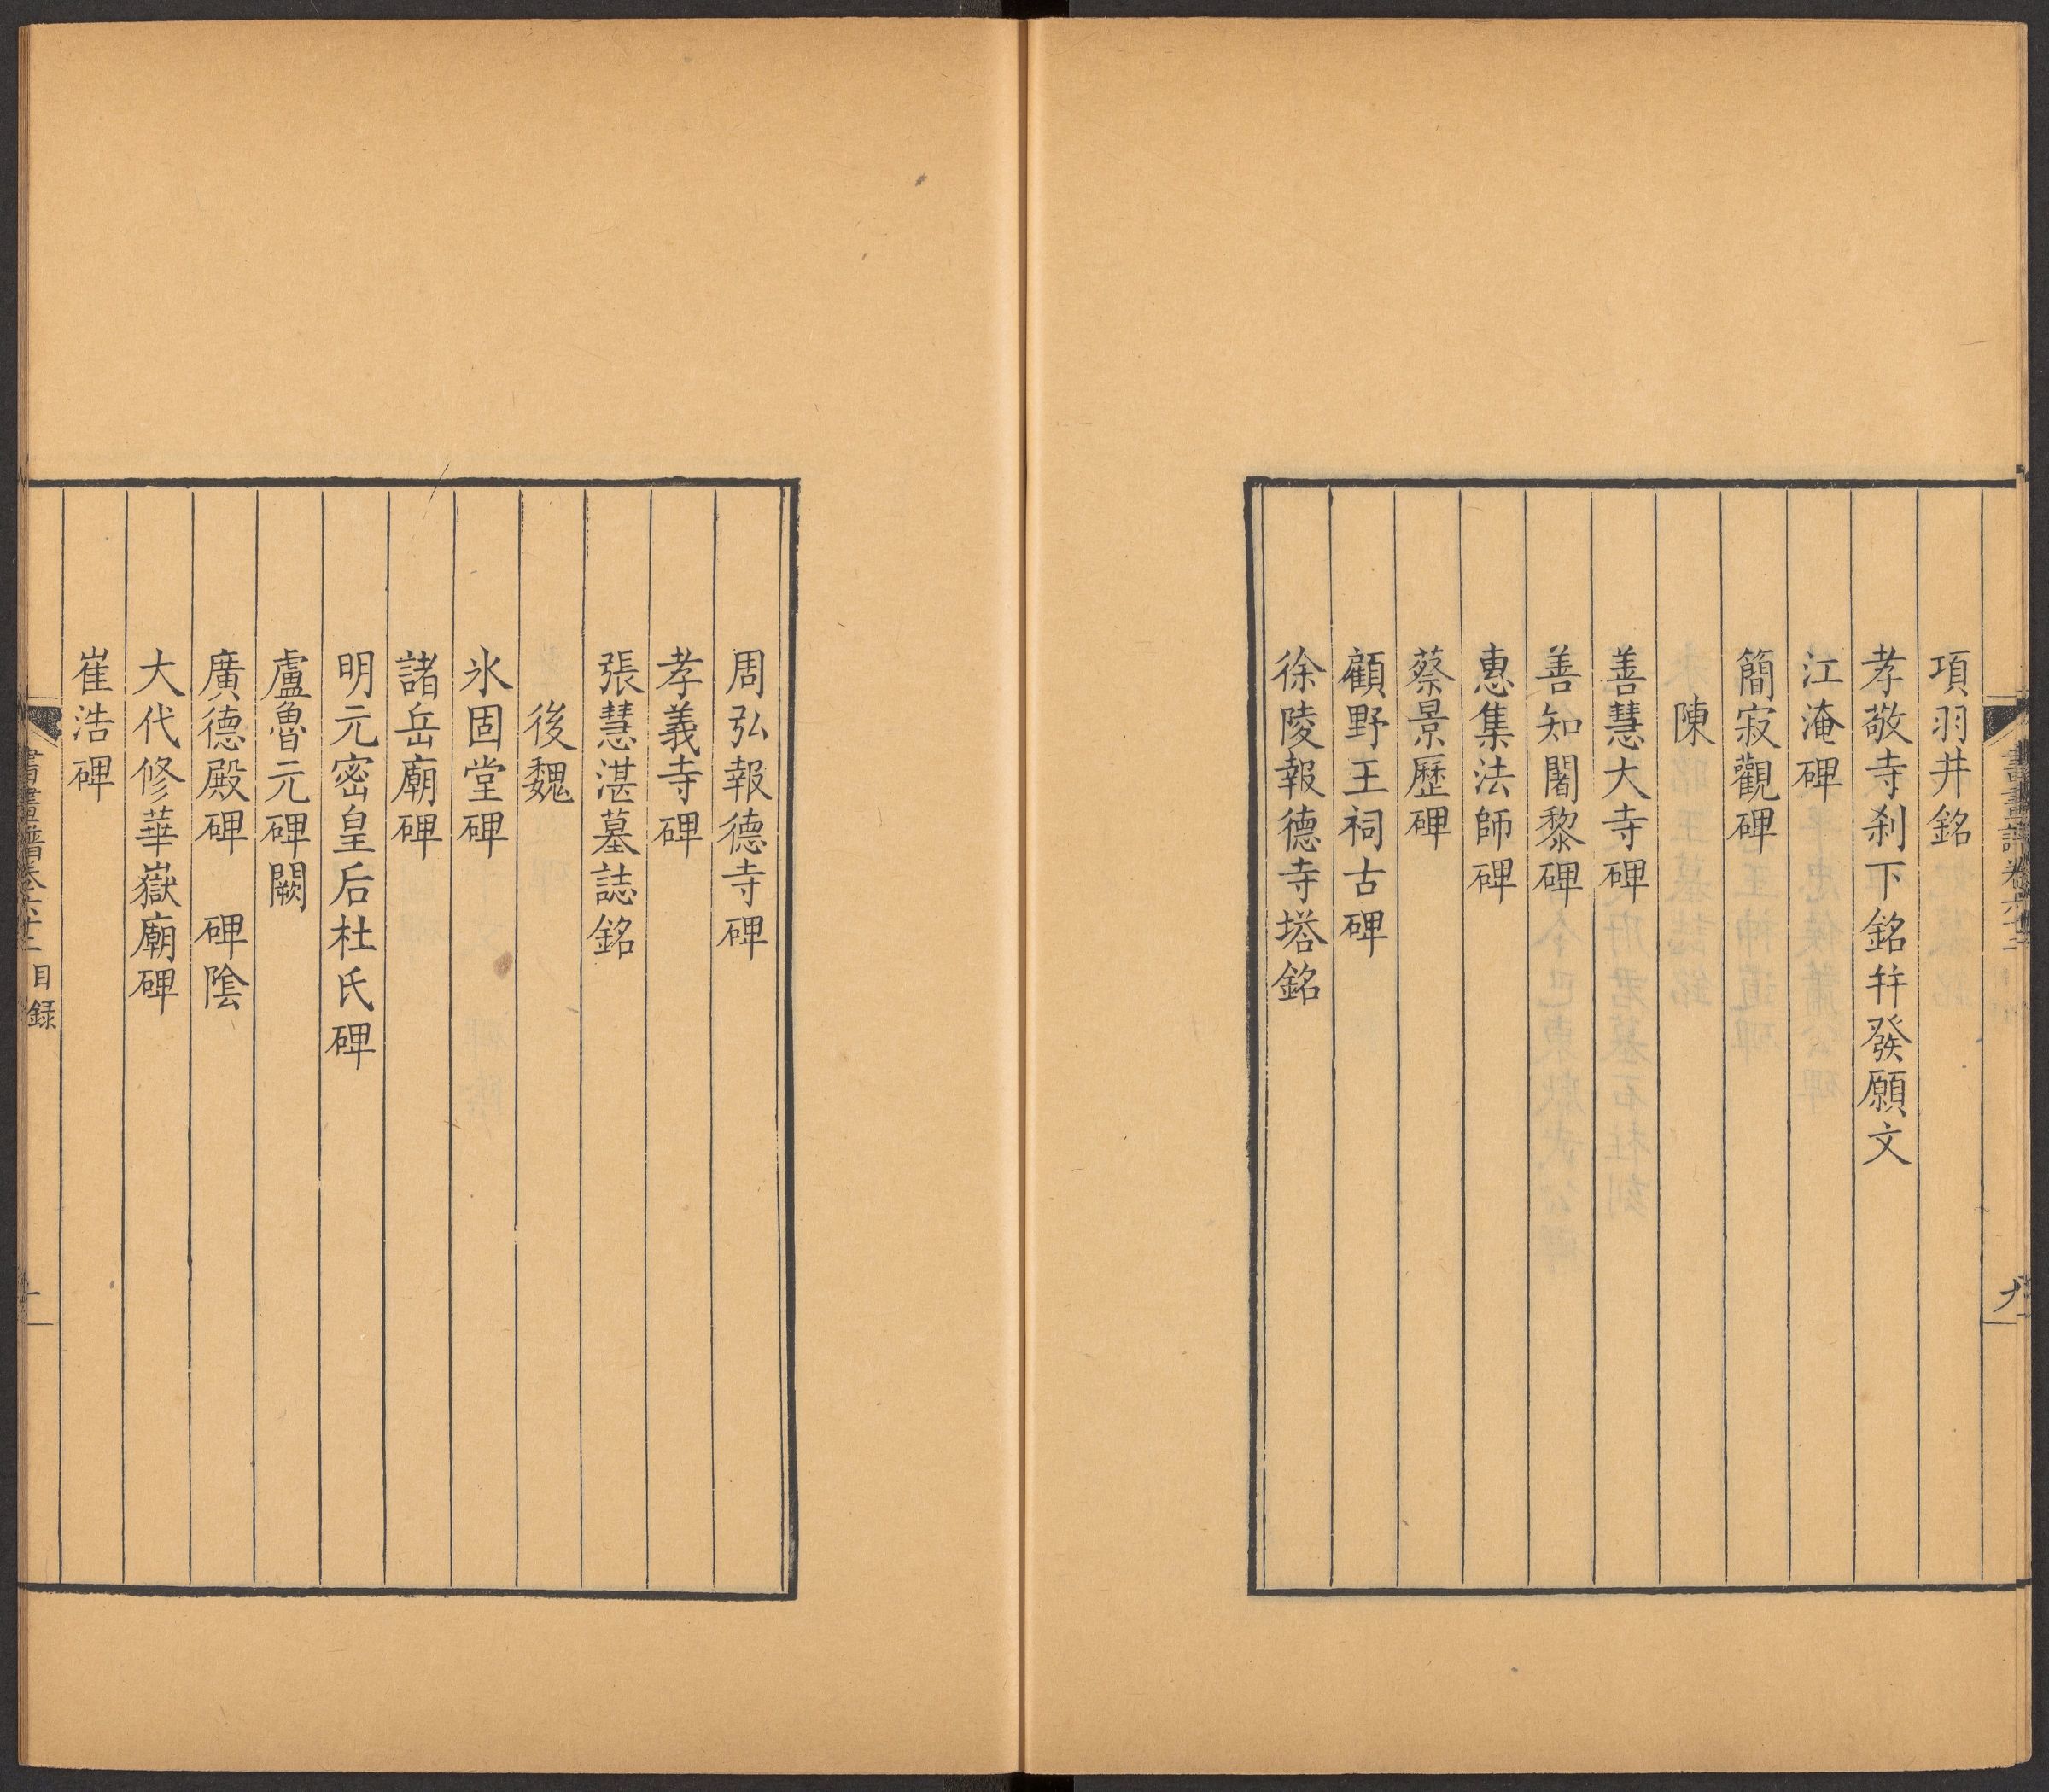 項羽井銘
孝敬寺刹下銘并發願文
江淹碑
簡寂觀碑
陳
善慧大寺碑
善知闍黎碑
惠集法師碑
蔡景歷碑
顧野王祠古碑
徐陵報德寺塔銘
周弘報德寺碑
孝義寺碑
張慧湛墓誌銘
後魏
氷固堂碑
諸岳廟碑
明元密皇后杜氏碑
盧魯元碑闕
廣德殿碑 碑陰
大代修華嶽廟碑
崔浩碑
書畫譜卷六十二 目録